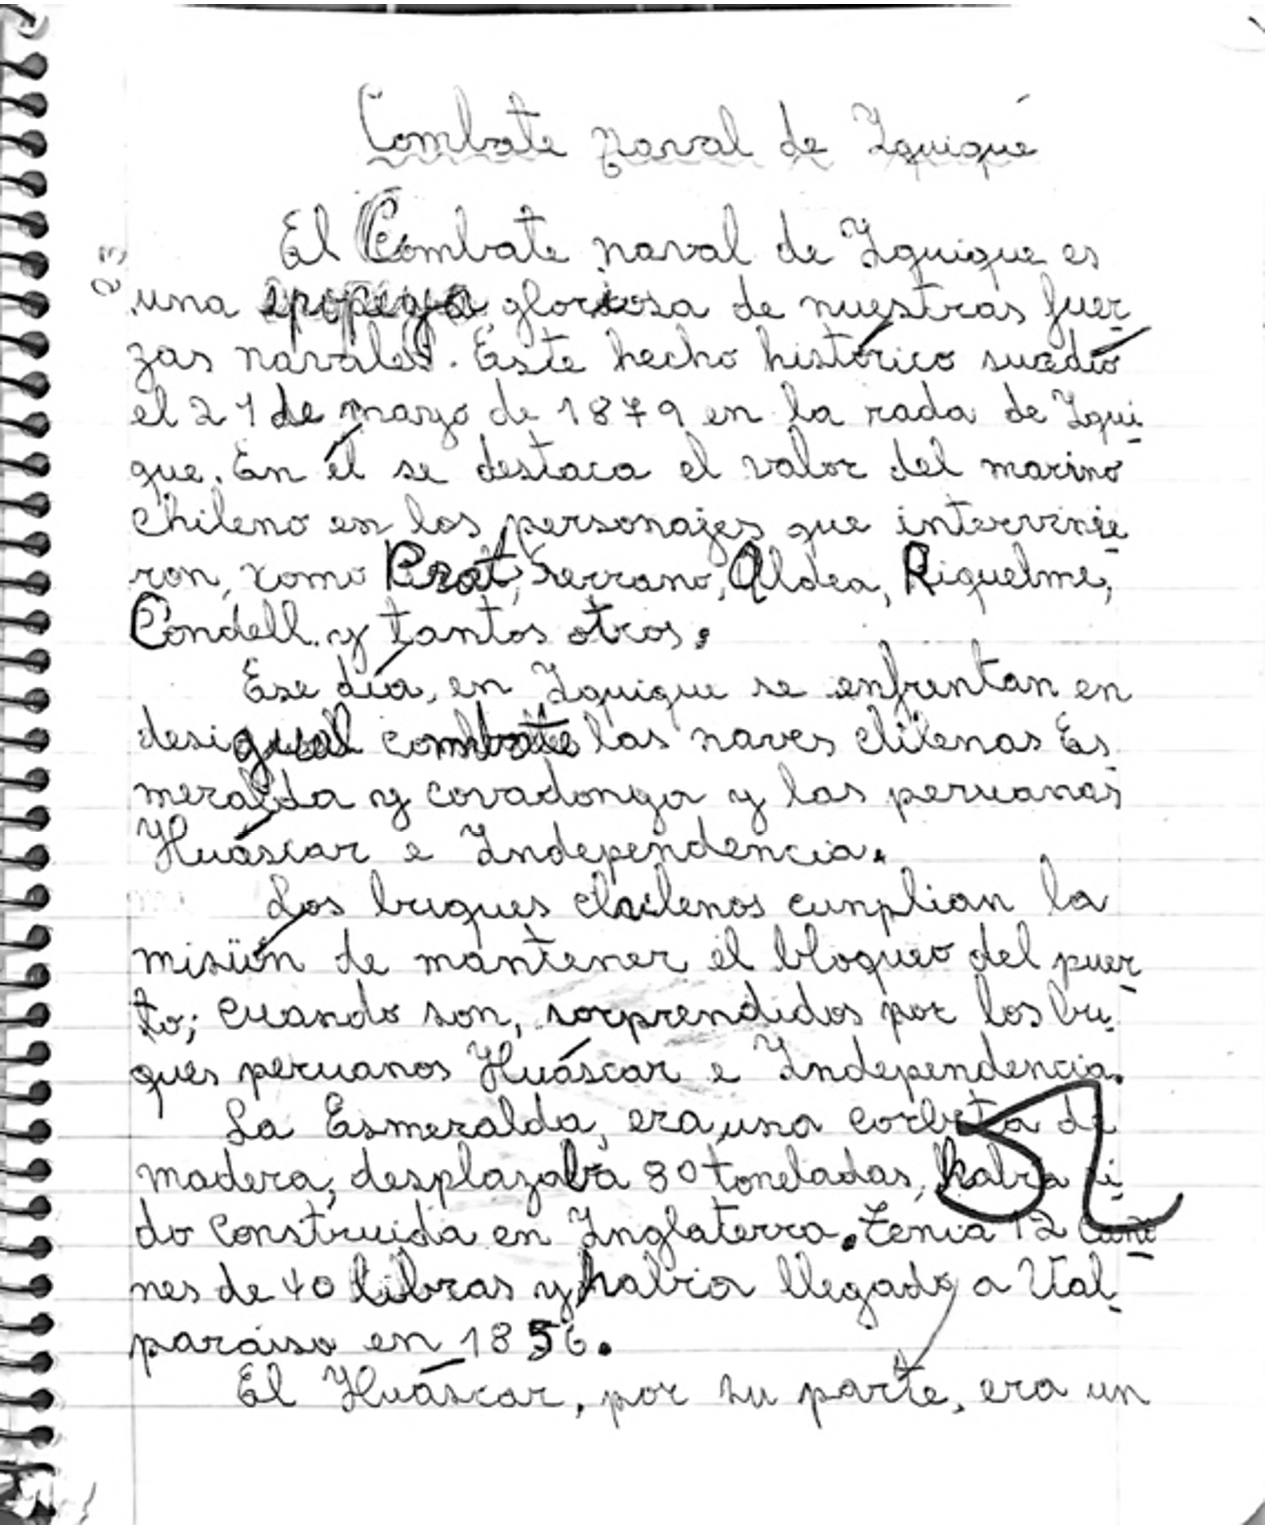 Combate naval de Iquiqué
El Combate naval de Iquique es
una epopeya gloriosa de nuestras fuer
zas navales. Este hecho histórico sucedió
el 21 de mayo de 1879 en la rada de Iqui
que. En él se destaca el valor del marino
chileno en los personajes que intervinie
ron, como Prat, Serrano, Aldea, Riquelme,
Condell y tantos otros.
Ese día, en Iquique se enfrentan en
desigual combate las naves chilenas Es
meralda y covadonga y las peruanas
Huáscar e Independencia.
Los buques chilenos cunplian la
misión de mantener el bloqueo del puer
to; cuando son, sorprendidos por los bu
ques peruanos Huáscar e Independencia.
La Esmeralda, era una corbeta de
madera, desplazaba 80 toneladas, habia si
do construida en Inglaterra. tenia 12 caño
nes de 40 libras y habia llegado a Val
paraiso en 1856.
El Huáscar, por su parte, era un
23